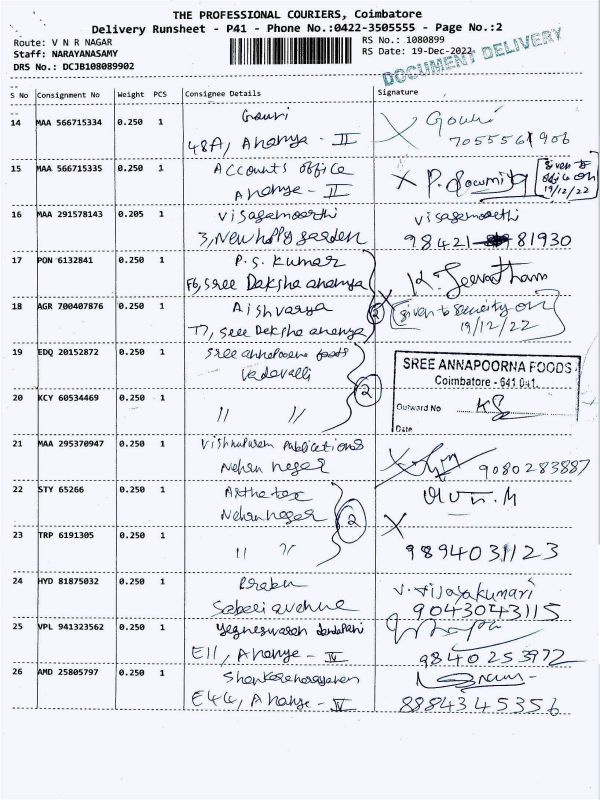 THE PROFESSIONAL COURIERS, Coimbatore
Delivery Runsheet - P41 - Phone No.:0422-3505555 - Page No.:2
Route: V N R NAGAR
RS No.: 1080899
Staff: NARAYANASAMY
RS Date: 19-Dec-2022
DRS No.: DCJB108089902
DOCUMENT DELIVERY
S No Consignment No Weight PCS Consignee Details Signature
14 MAA 566715334 0.250 1 Gouri Gouri
48A, Ananya - II 7055561906
15 MAA 566715335 0.250 1 Accounts office
Ananya - II
given to office on 19/12/22
16 MAA 291578143 0.205 1 Visagamoorthi Visagamoorthi
3, New hppy garden 98421 81930
17 PON 6132841 0.250 1 P.S. Kumar
F6, Sree Daksha ananya K. Jeevatham
18 AGR 700407876 0.250 1 Aishvarya given to security on
T7, Sree Daksha ananya 19/12/22
19 EDQ 20152872 0.250 1 Sree annapoorna foods
Vadavalli
SREE ANNAPOORNA FOODS
Coimbatore - 641 041.
Outward No
Date
20 KCY 60534469 0.250 1 " "
2
21 MAA 295370947 0.250 1 Vishnupuram Publications
Nehru nagar 9080283887
22 STY 65266 0.250 1
Nehru nagar
2
23 TRP 6191305 0.250 1 " "
9894031123
24 HYD 81875032 0.250 1 Prabu V. Vijayakumari
avenue 9043043115
25 VPL 941323562 0.250 1
E11, Ananya - IV 9840253972
26 AMD 25805797 0.250 1 Shankaranarayanan
E44, Ananya - IV 8884345356